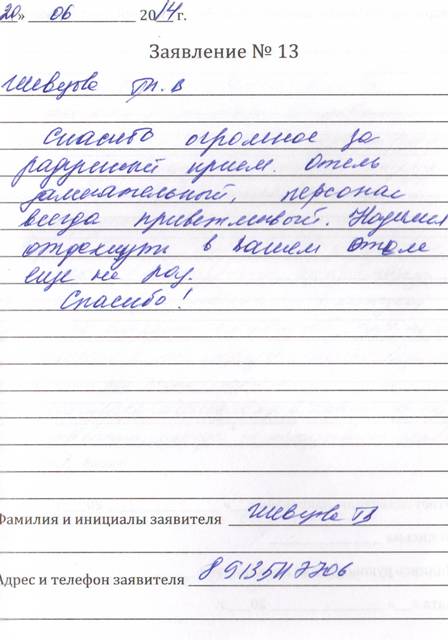 20» 06 2014 г.
Заявление № 13
Шевцова Т.В
Спасибо огромное за
радушный прием. Отель
замечательный, персонал
всегда приветливый. Надеемся
отдохнуть в вашем отеле
еще не раз.
Спасибо!
Фамилия и инициалы заявителя Шевцова ТВ
Адрес и телефон заявителя